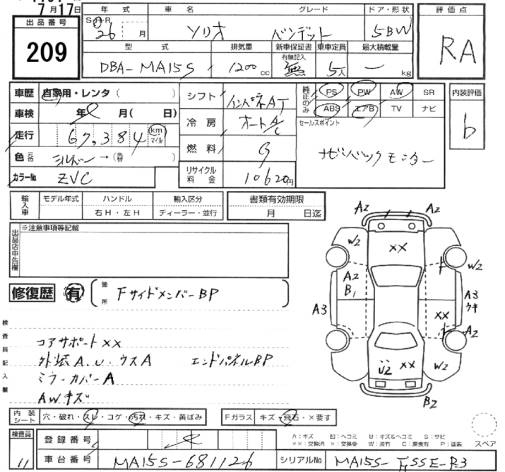 7月17日
出品番号
209
年式 車名 グレード ドア・形状
S・H・R 26年 月 ソリオ バンデット 5BW
型式 排気量 新車保証書 乗車定員 最大積載量
有無記入
DBA-MA15S 1200cc 無 5人 — kg
評価点
RA
車歴 自家用・レンタ( )
車検 年 月( 日)
走行 67,384 km マイル
色 元色 シルバー→(替)
カラーNo ZVC
シフト インパネAT
冷房 オートA/C
燃料 G
リサイクル料金 10620円
純正のみ PS PW AW SR
ABS エアB TV ナビ
セールスポイント
ナビ バックモニター
内装評価
b
輸入車 モデル年式 ハンドル 輸入区分
右H・左H ディーラー・並行
書類有効期限
月 日迄
出品店申告欄
※注意事項等記載
修復歴 有 箇所 FサイドメンバーBP
検査員記入欄
コアサポートXX
外装A、U・ウスA エンドパネルBP
ミラーカバーA
AWキズ
A2
W2
XX
A2
W2
A2
B1
A3
A3
ウキ
XX
W2
XX
U2
W2
B2
内装シート 穴・破れ・スレ・コゲ・汚れ・キズ・黄ばみ
Fガラス キズ・飛石・X要す
スペア
検査員
11
登録番号
車台番号 MA15S-681126
シリアルNo MA15S-TSSE-R3